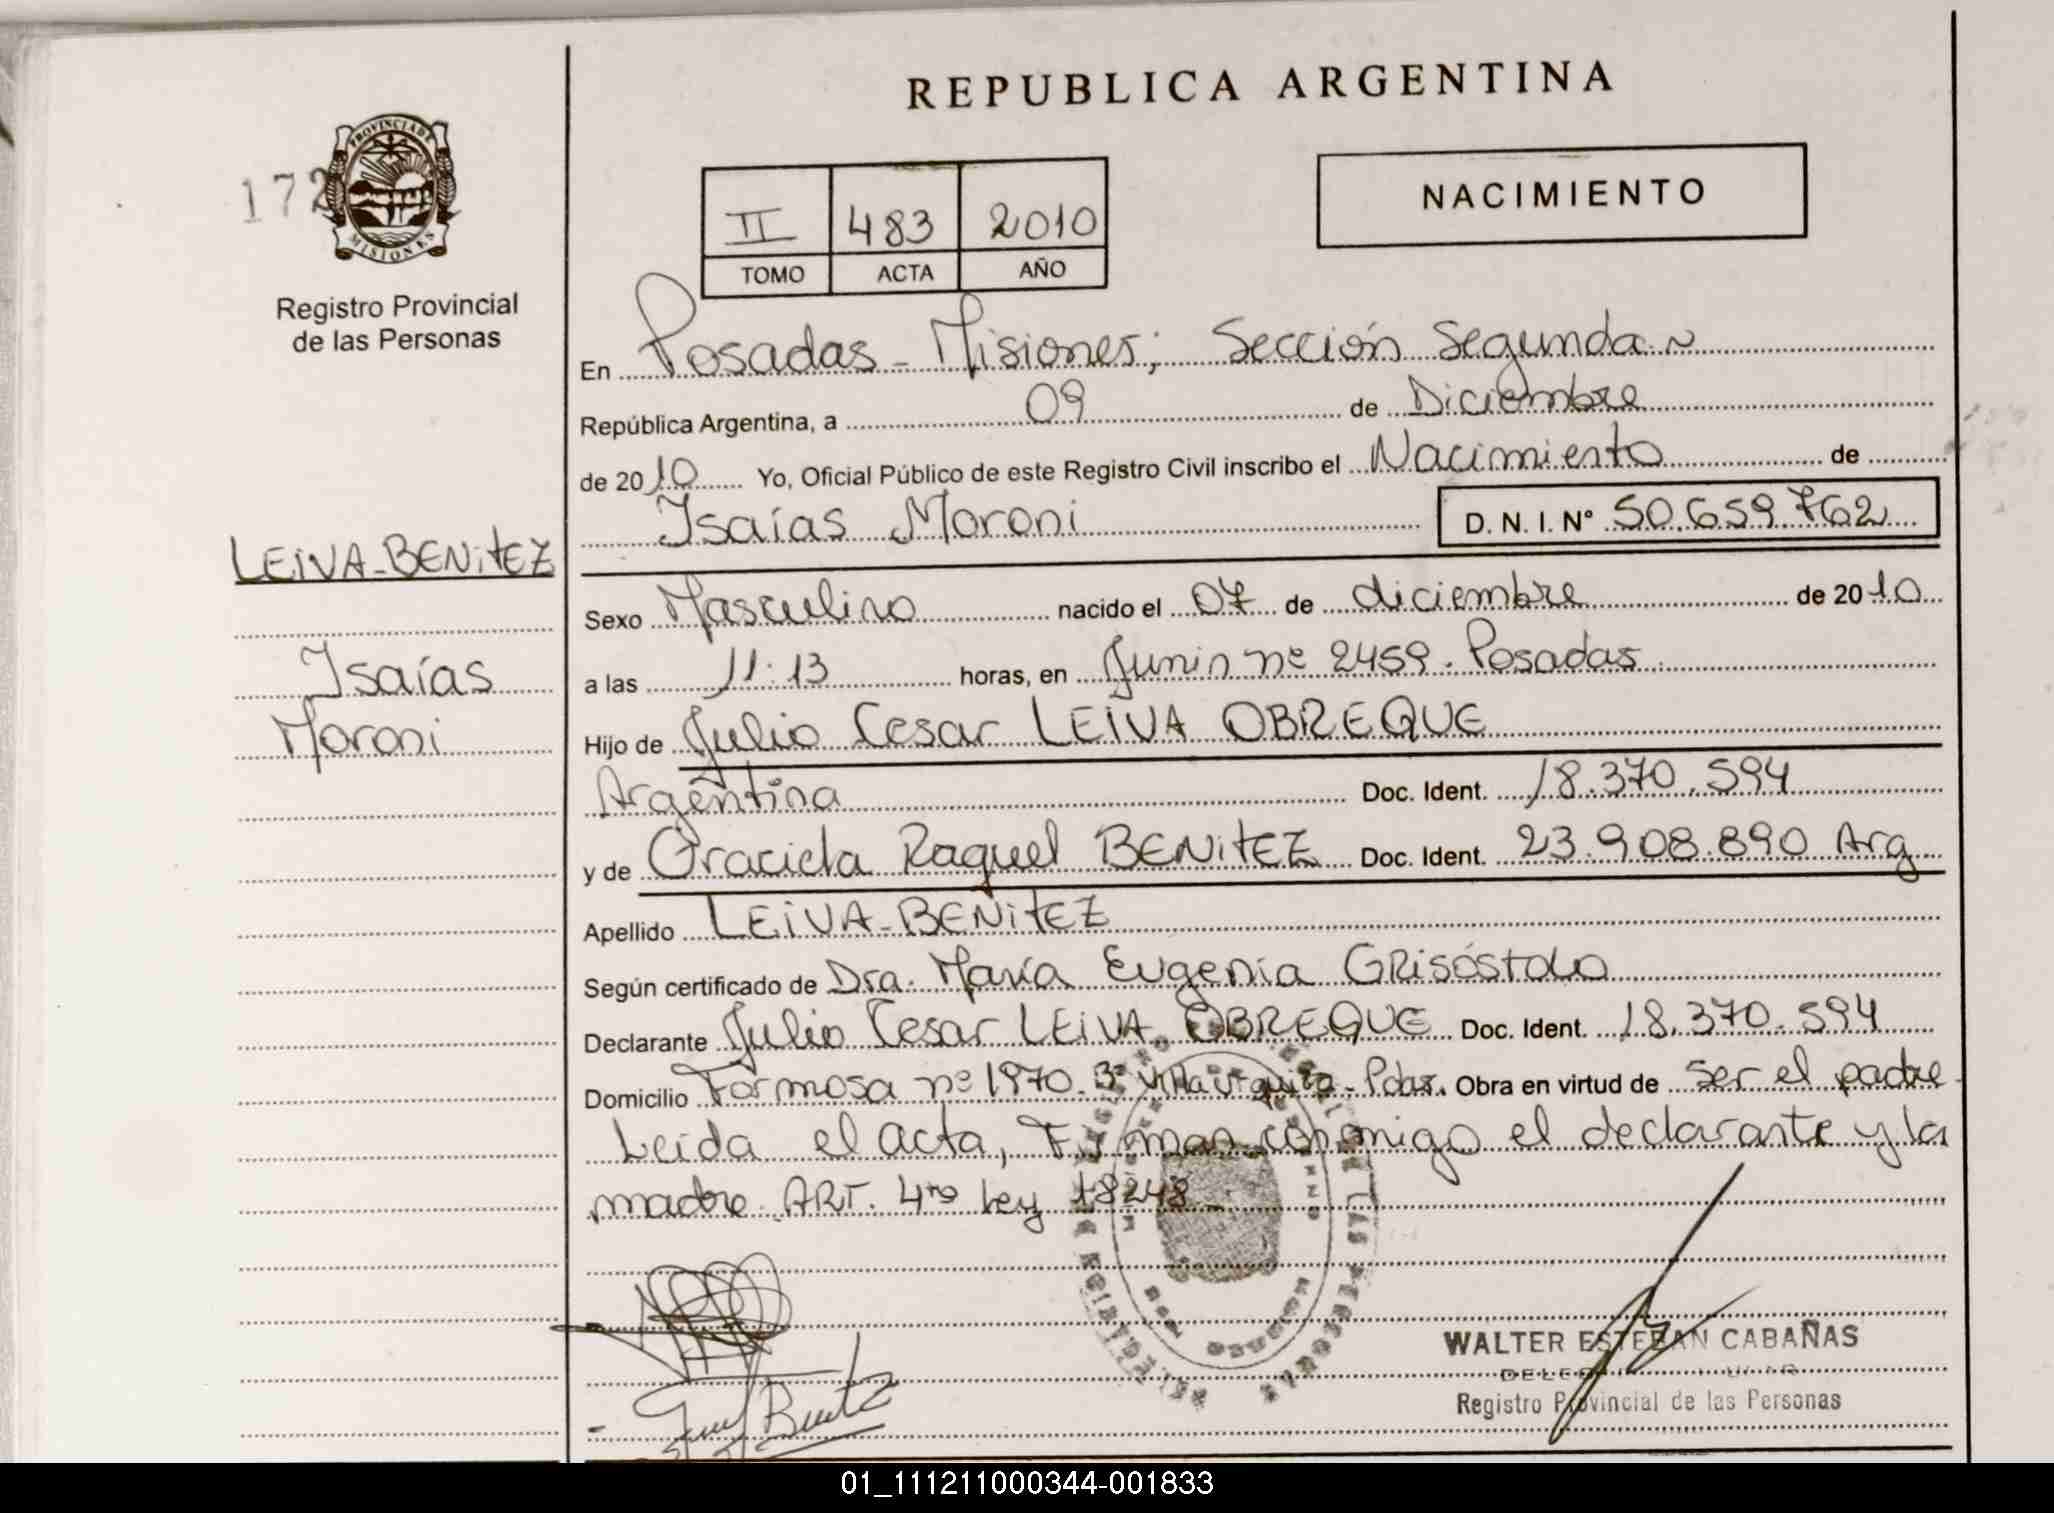 REPUBLICA ARGENTINA
172
PROVINCIA DE MISIONES
Registro Provincial
de las Personas
II 483 2010
TOMO ACTA AÑO
NACIMIENTO
En Posadas - Misiones; Sección Segunda
República Argentina, a 09 de Diciembre
de 2010 Yo, Oficial Público de este Registro Civil inscribo el Nacimiento de
Isaías Moroni D. N. I. N° 50.659.762
LEIVA-BENITEZ
Isaías
Moroni
Sexo Masculino nacido el 07 de diciembre de 2010
a las 11:13 horas, en Junin nº 2459. Posadas
Hijo de Julio Cesar LEIVA OBREQUE
Argentina Doc. Ident. 18.370.594
y de Graciela Raquel BENITEZ Doc. Ident. 23.908.890 Arg
Apellido LEIVA-BENITEZ
Según certificado de Dra. María Eugenia GRISÓSTOLO
Declarante Julio Cesar LEIVA OBREQUE Doc. Ident. 18.370.594
Domicilio Formosa nº 1970. Bº Villa Urquiza - Pdas. Obra en virtud de ser el padre
Leida el acta, Firman conmigo el declarante y la
madre. ART. 4to Ley 18248
Benitez
WALTER ESTEBAN CABAÑAS
Registro Provincial de las Personas
01_111211000344-001833